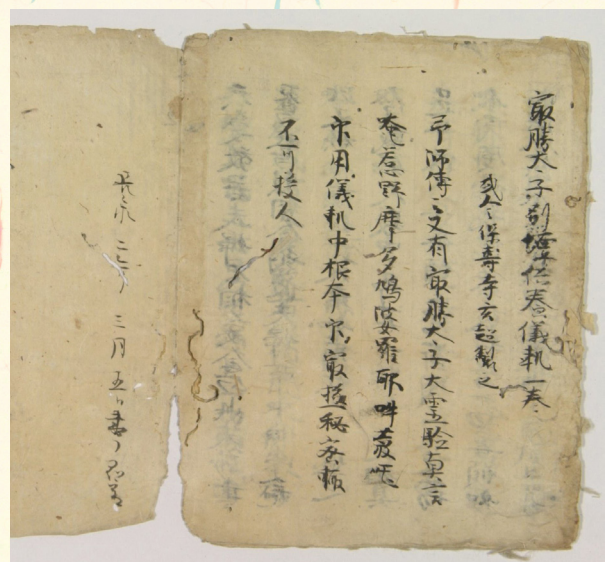 最勝太子別壇供養儀軌一巻
或云保壽寺玄超製之
予師傳之文有最勝太子大靈驗真言
唵惹野摩多鳩婆羅耶吽發吒
用儀軌中根本最極秘密輙
不可授人
三月五日書了